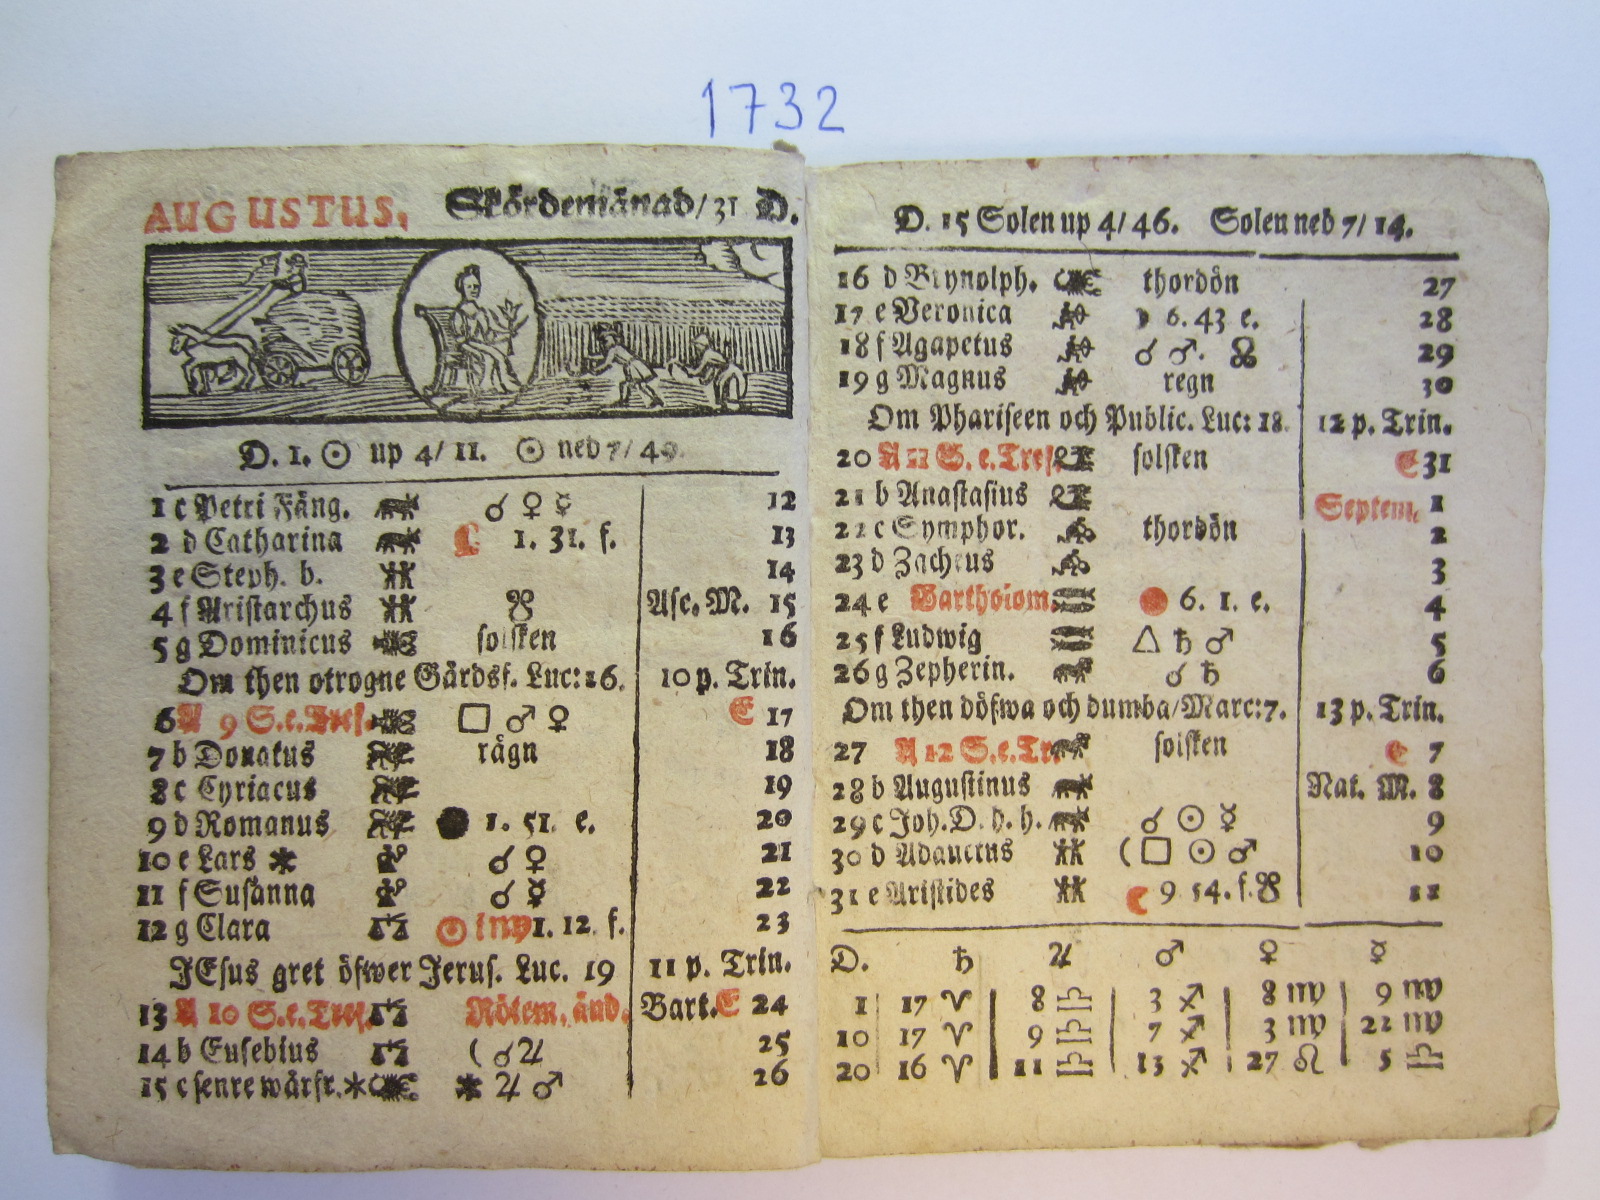 1732
AUGUSTUS, Skördemånad/31 D.
D. 1. ☉ up 4/ 11. ☉ ned 7/ 49.
1 c Petri Fäng. ☌ ♀ ☿ 12
2 d Catharina 1. 31. f. 13
3 e Steph. b. 14
4 f Aristarchus ☋ Asc. M. 15
5 g Dominicus solsken 16
Om then otrogne Gårdsf. Luc: 16. 10 p. Trin.
6 A 9 S. e. Tref. □ ♂ ♀ E 17
7 b Donatus rägn 18
8 c Cyriacus 19
9 d Romanus ● 1. 51. e. 20
10 e Lars * ☌ ♀ 21
11 f Susanna ☌ ☿ 22
12 g Clara ☉ i ♍ 1. 12. f. 23
JEsus gret öfwer Jerus. Luc. 19 11 p. Trin.
13 A 10 S. e. Tref. Rötem. änd. Bart. E 24
14 b Eusebius ( ☌ ♃ 25
15 c senre wårfr. * * ♃ ♂ 26
D. 15 Solen up 4/ 46. Solen ned 7/ 14.
16 d Brynolph. thordön 27
17 e Veronica ☽ 6. 43 e. 28
18 f Agapetus ☌ ♂. ☊ 29
19 g Magnus regn 30
Om Phariseen och Public. Luc: 18. 12 p. Trin.
20 A 11 S. e. Tref. solsken E 31
21 b Anastasius Septem. 1
22 c Symphor. thordön 2
23 d Zacheus 3
24 e Bartholom. 6. 1. e. 4
25 f Ludwig △ ♄ ♂ 5
26 g Zepherin. ☌ ♄ 6
Om then döfwa och dumba/Marc: 7. 13 p. Trin.
27 A 12 S. e. Tr. solsken E 7
28 b Augustinus Nat. M. 8
29 c Joh. D. h. h. ☌ ☉ ☿ 9
30 d Adauctus ( □ ☉ ♂ 10
31 e Aristides ☾ 9 54. f. ☋ 11
D. ♄ ♃ ♂ ♀ ☿
1 17 ♈ 8 ♎ 3 ♐ 8 ♍ 9 ♍
10 17 ♈ 9 ♎ 7 ♐ 3 ♍ 22 ♍
20 16 ♈ 11 ♎ 13 ♐ 27 ♌ 5 ♎